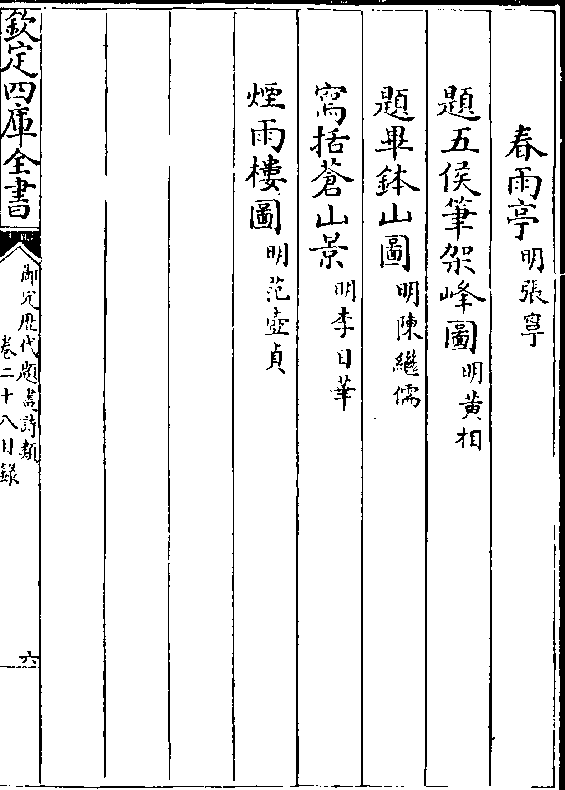 春雨亭明張寧
題五侯筆架峰圖明黄相
題畢鉢山圖明陳繼儒
寫括蒼山景明李日華
煙雨樓圖明范壺貞
欽定四庫全書
御定歴代題畫詩類
卷二十八目錄
六